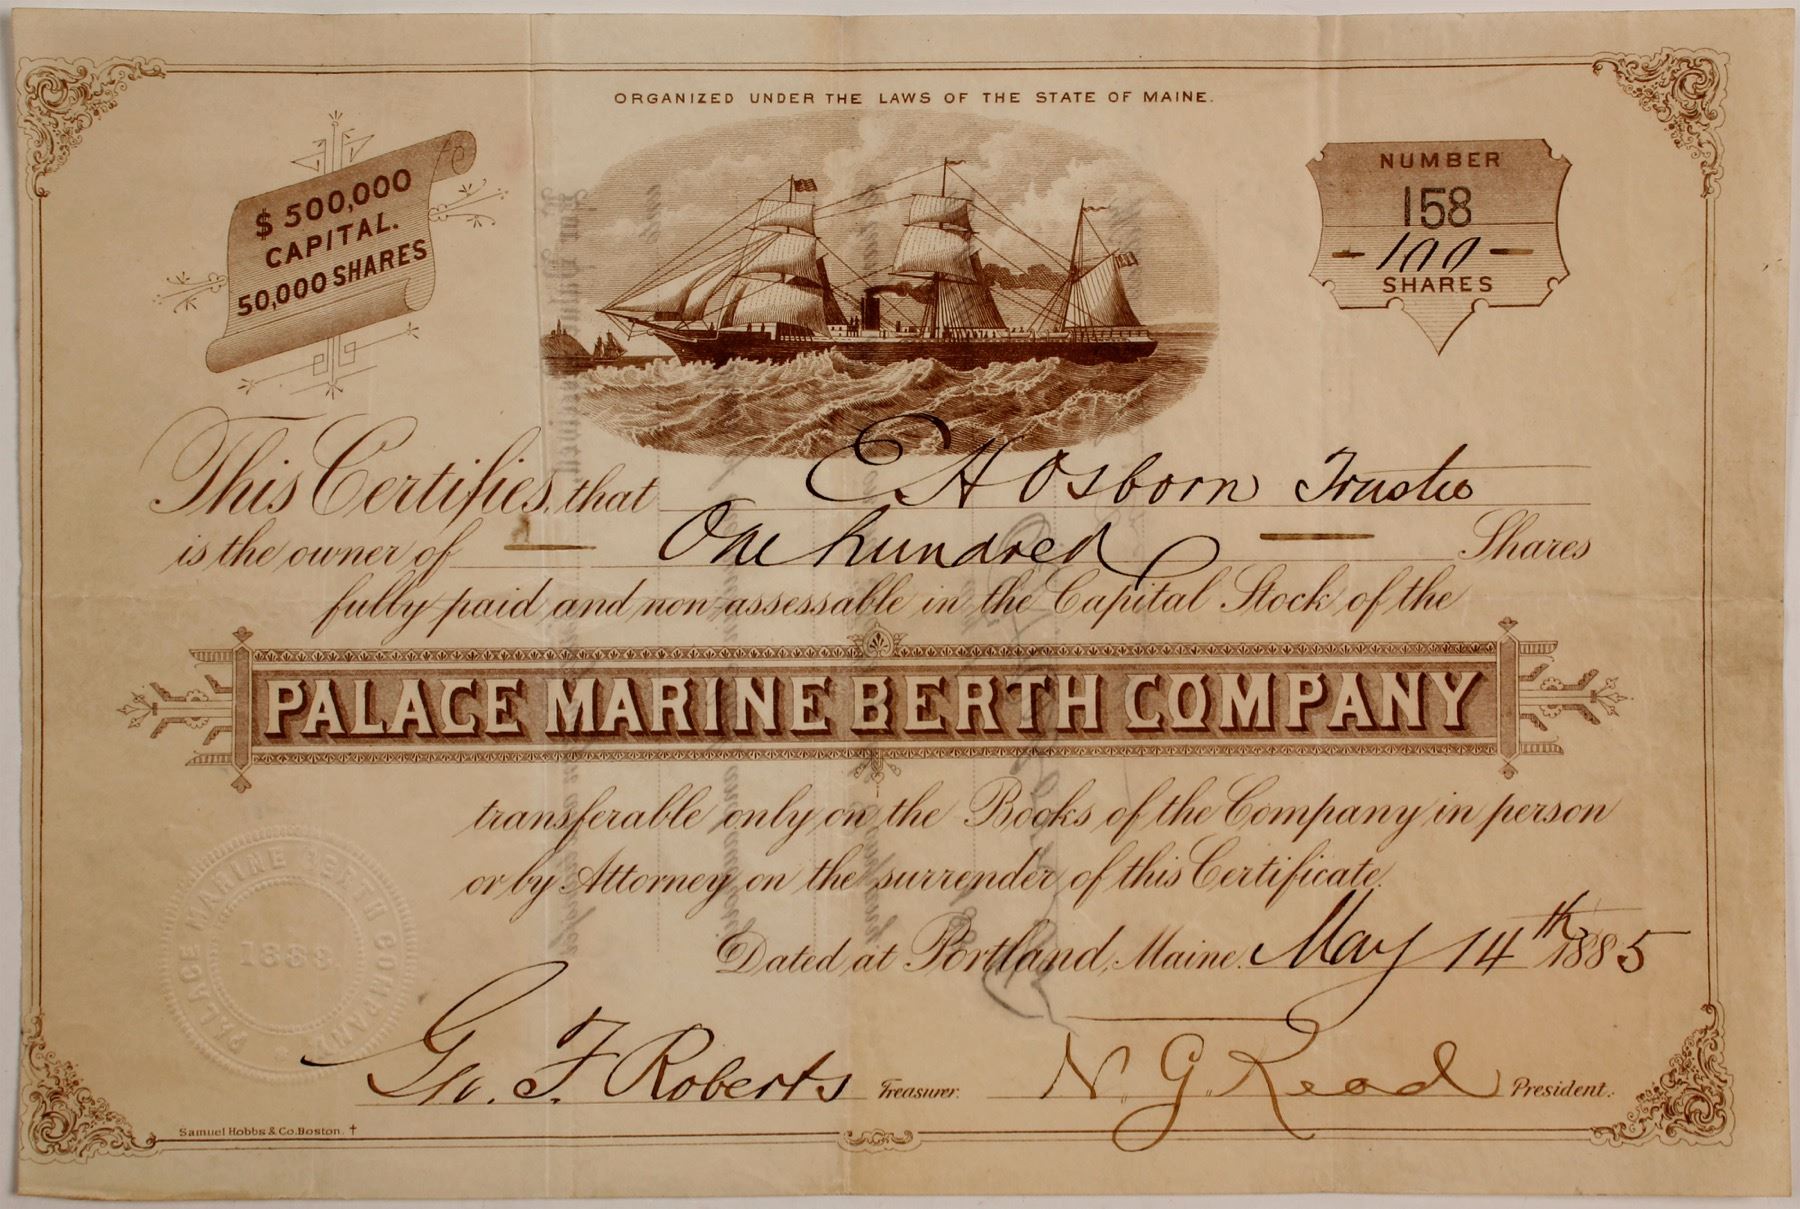 ORGANIZED UNDER THE LAWS OF THE STATE OF MAINE.
$ 500,000
CAPITAL.
50,000 SHARES
NUMBER
158
- 100 -
SHARES
This Certifies, that E H Osborn Trustee
is the owner of — One hundred — Shares
fully paid and non-assessable in the Capital Stock of the
PALACE MARINE BERTH COMPANY
transferable only on the Books of the Company in person
or by Attorney on the surrender of this Certificate.
Dated at Portland, Maine. May 14th 1885
PALACE MARINE BERTH COMPANY
1883
Geo. F. Roberts Treasurer. N. G. Read President.
Samuel Hobbs & Co. Boston. †